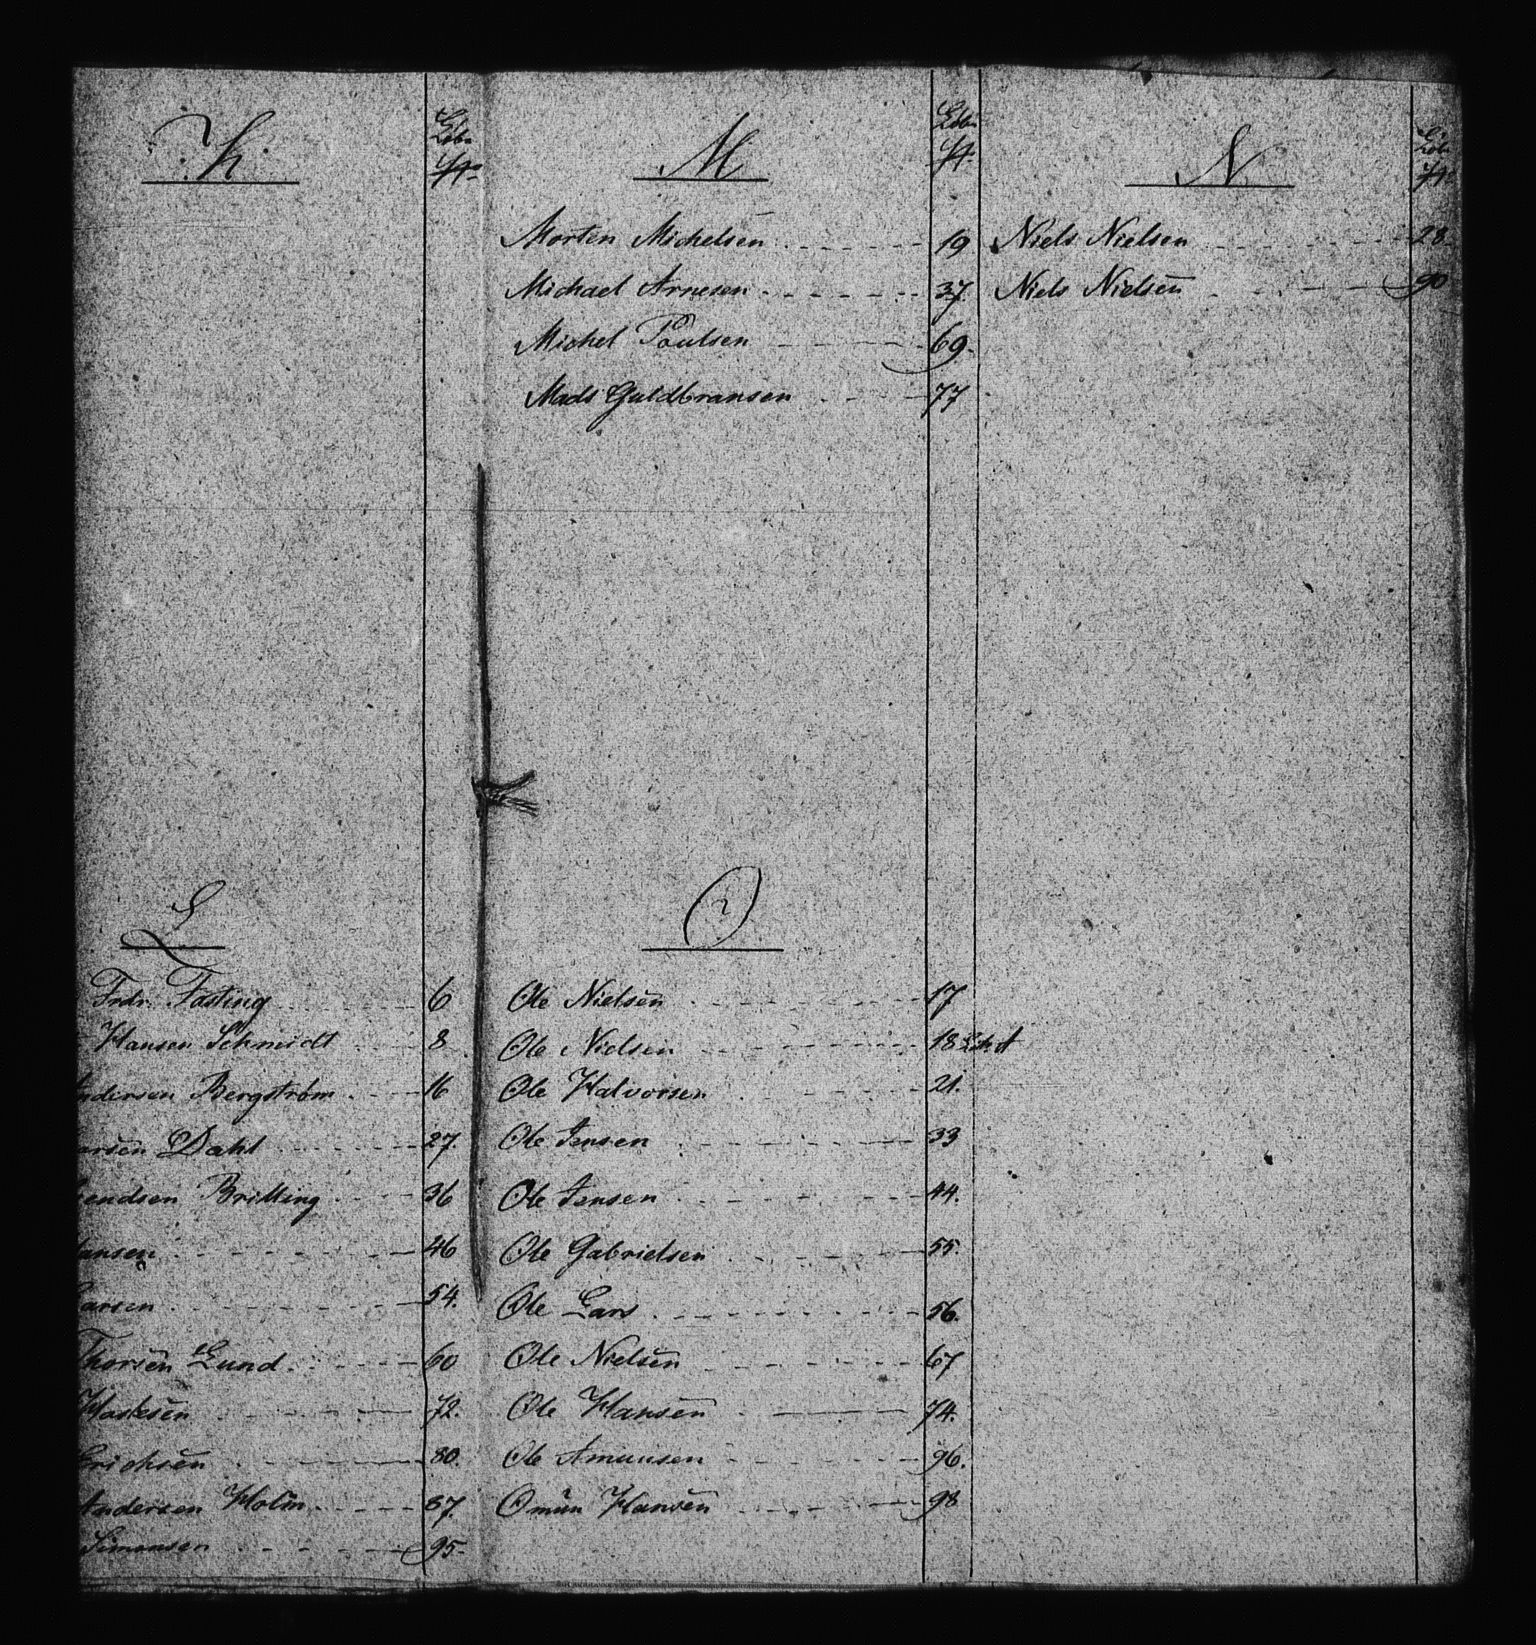 K
Löb.
№
L
Frdr. Fasting 6
Hansen Schmidt 8
ndersen Bergström 16
arsen Dahl 27.
endsen Britting 36
ansen 46
arsen 54.
Thorsen Lund 60
72.
Erichsen 80.
Andersen Holm 87.
Simonsen 95
M
Löb.
№
Morten Michelsen 19
Michael Arnesen 37.
Michel Poulsen 69.
Mads Guldbransen 77
O
Ole Nielsen 17
Ole Nielsen 18 Litr. A
Ole Halvorsen 21.
Ole Jensen 33
Ole Jensen 44.
Ole Gabrielsen 55.
Ole Lars 56.
Ole Nielsen 67
Ole Hansen 74.
Ole Amunsen 96.
Omun Hansen 98
N
Löb.
№
Niels Nielsen 28
Niels Nielsen 90